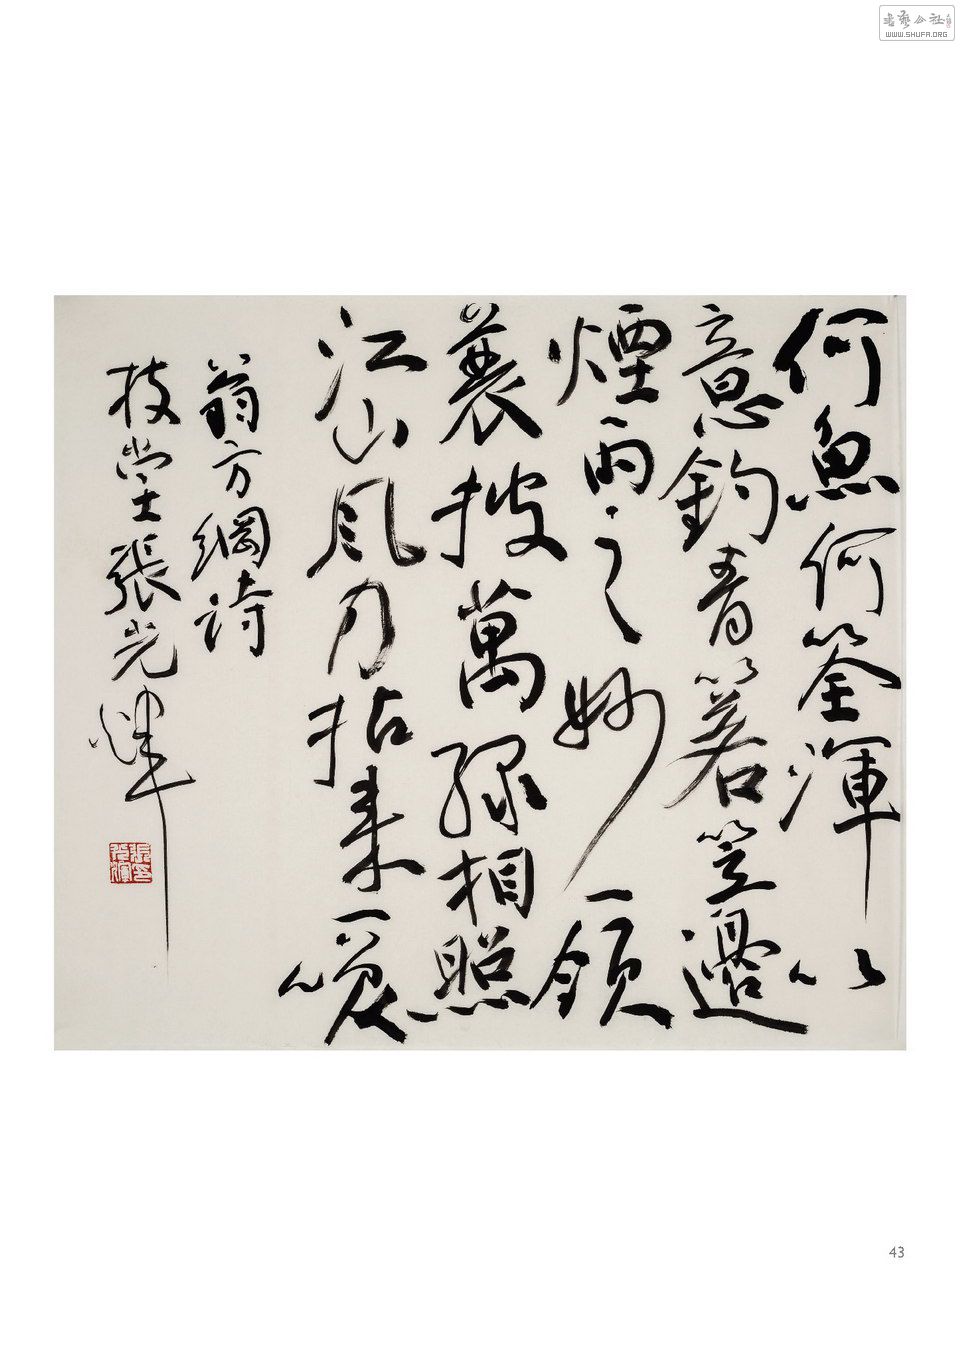 何魚何筌渾以
意釣青箬笠邊
煙雨之妙一領
蓑披萬綠相照
江山風月拈來一笑
翁方綱詩
枝堂張光煇
張印光煇
書藝公社
WWW.SHUFA.ORG
43